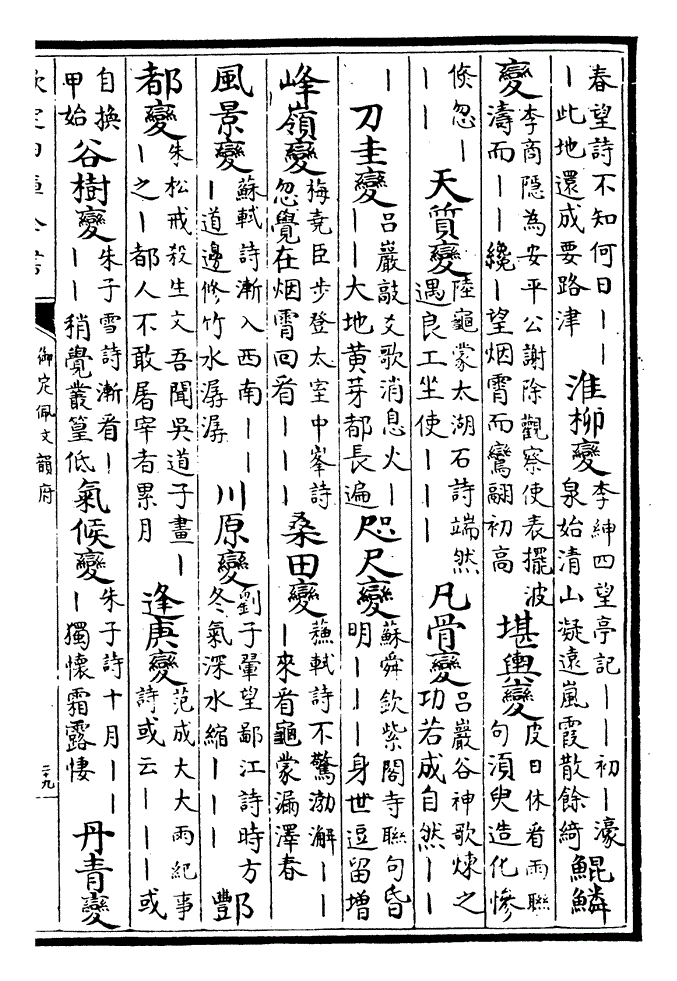 春望詩不知何日丨丨
丨此地還成要路津
淮柳變
李紳四望亭記丨丨初丨濠
泉始清山凝遠嵐霞散餘綺
鯤鱗
變
李商隱為安平公謝除觀察使表擺波
濤而丨丨纔丨望烟霄而鸞翮初高
堪輿變
皮日休看雨聯
句須臾造化慘
倐忽丨
丨丨
天質變
陸龜蒙太湖石詩端然
遇良工坐使丨丨丨
凡骨變
呂巖谷神歌煉之
功若成自然丨丨
丨
刀圭變
呂巖敲爻歌消息火丨
丨丨大地黄芽都長遍
咫尺變
蘇舜欽紫閣寺聯句昏
明丨丨丨身世逗留增
峰嶺變
梅堯臣步登太室中峯詩
忽覺在烟霄回看丨丨丨
桑田變
蘇軾詩不驚渤澥丨丨
丨來看龜蒙漏澤春
風景變
蘇軾詩漸入西南丨丨
丨道邊修竹水潺潺
川原變
劉子翬望鄱江詩時方
冬氣深水縮丨丨丨
酆
都變
朱松戒殺生文吾聞吳道子畫丨
丨之丨都人不敢屠宰者累月
逢庚變
范成大大雨紀事
詩或云丨丨丨或
自換
甲始
谷樹變
朱子雪詩漸看丨
丨丨稍覺叢篁低
氣候變
朱子詩十月丨丨
丨獨懷霜露悽
丹青變
欽定四庫全書
御定佩文韻府
二十九